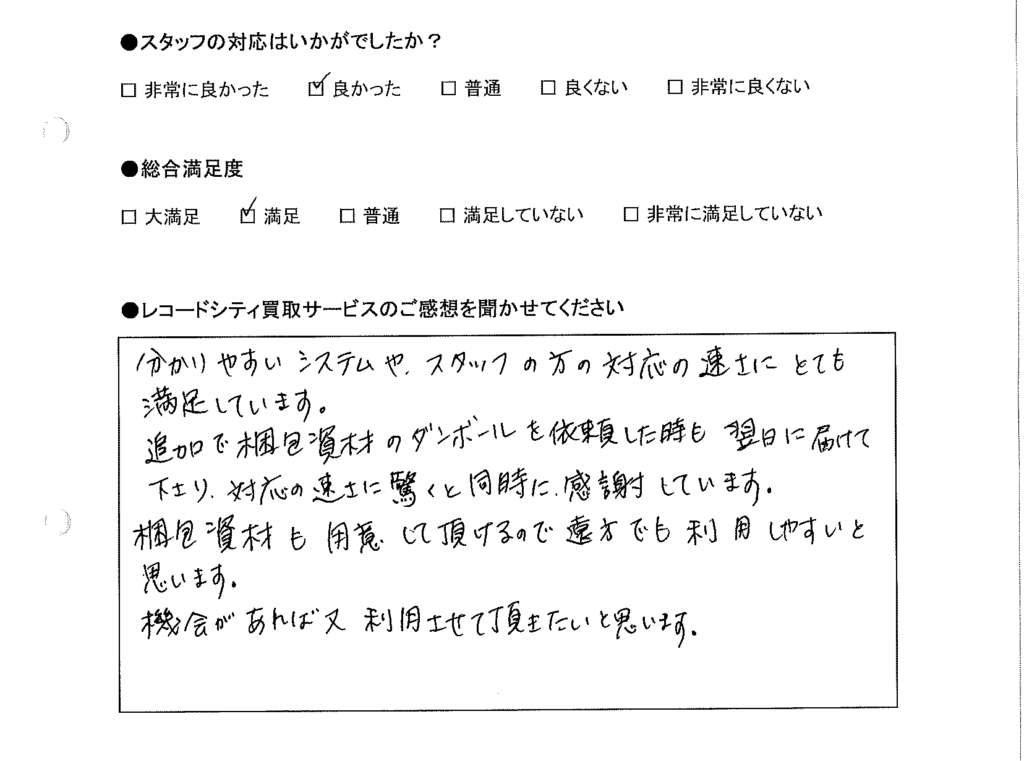 ●スタッフの対応はいかがでしたか？
□ 非常に良かった ☑ 良かった □ 普通 □ 良くない □ 非常に良くない
●総合満足度
□ 大満足 ☑ 満足 □ 普通 □ 満足していない □ 非常に満足していない
●レコードシティ買取サービスのご感想を聞かせてください
分かりやすいシステムや、スタッフの方の対応の速さにとても
満足しています。
追加で梱包資材のダンボールを依頼した時も翌日に届けて
下さり、対応の速さに驚くと同時に、感謝しています。
梱包資材も用意して頂けるので遠方でも利用しやすいと
思います。
機会があれば又利用させて頂きたいと思います。